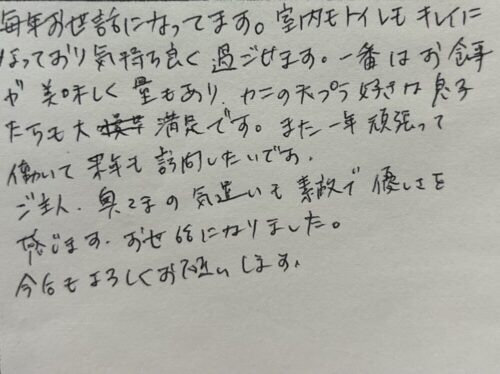 毎年お世話になってます。室内もトイレも キレイに
なっており気持ち良く 過ごせます。一番は お食事
が 美味しく 量もあり、カニの天プラ好きな 息子
たちも大満足です。また一年 頑張って
働いて 来年も 訪問したいです。
ご主人、奥さまの 気遣いも 素敵で 優しさを
感じます。お世話になりました。
今后もよろしくお願いします。